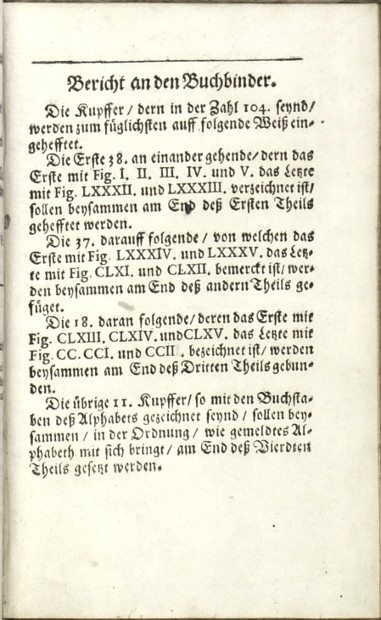 Bericht an den Buchbinder.
Die Kupffer / dern in der Zahl 104. seynd /
werden zum füglichsten auff folgende Weiß ein-
gehefftet.
Die Erste 38. an einander gehende / dern das
Erste mit Fig. I. II. III. IV. und V. das Letzte
mit Fig. LXXXII. und LXXXIII. verzeichnet ist /
sollen beysammen am End deß Ersten Theils
gehefftet werden.
Die 37. darauff folgende / von welchen das
Erste mit Fig. LXXXIV. und LXXXV. das Letz-
te mit Fig. CLXI. und CLXII. bemerckt ist / wer-
den beysammen am End deß andern Theils ge-
füget.
Die 18. daran folgende / deren das Erste mit
Fig. CLXIII. CLXIV. und CLXV. das Letzte mit
Fig. CC. CCI. und CCII. bezeichnet ist / werden
beysammen am End deß Dritten Theils gebun-
den.
Die übrige 11. Kupffer / so mit den Buchsta-
ben deß Alphabets gezeichnet seynd / sollen bey-
sammen / in der Ordnung / wie gemeldtes Al-
phabeth mit sich bringt / am End deß Vierdten
Theils gesetzt werden.